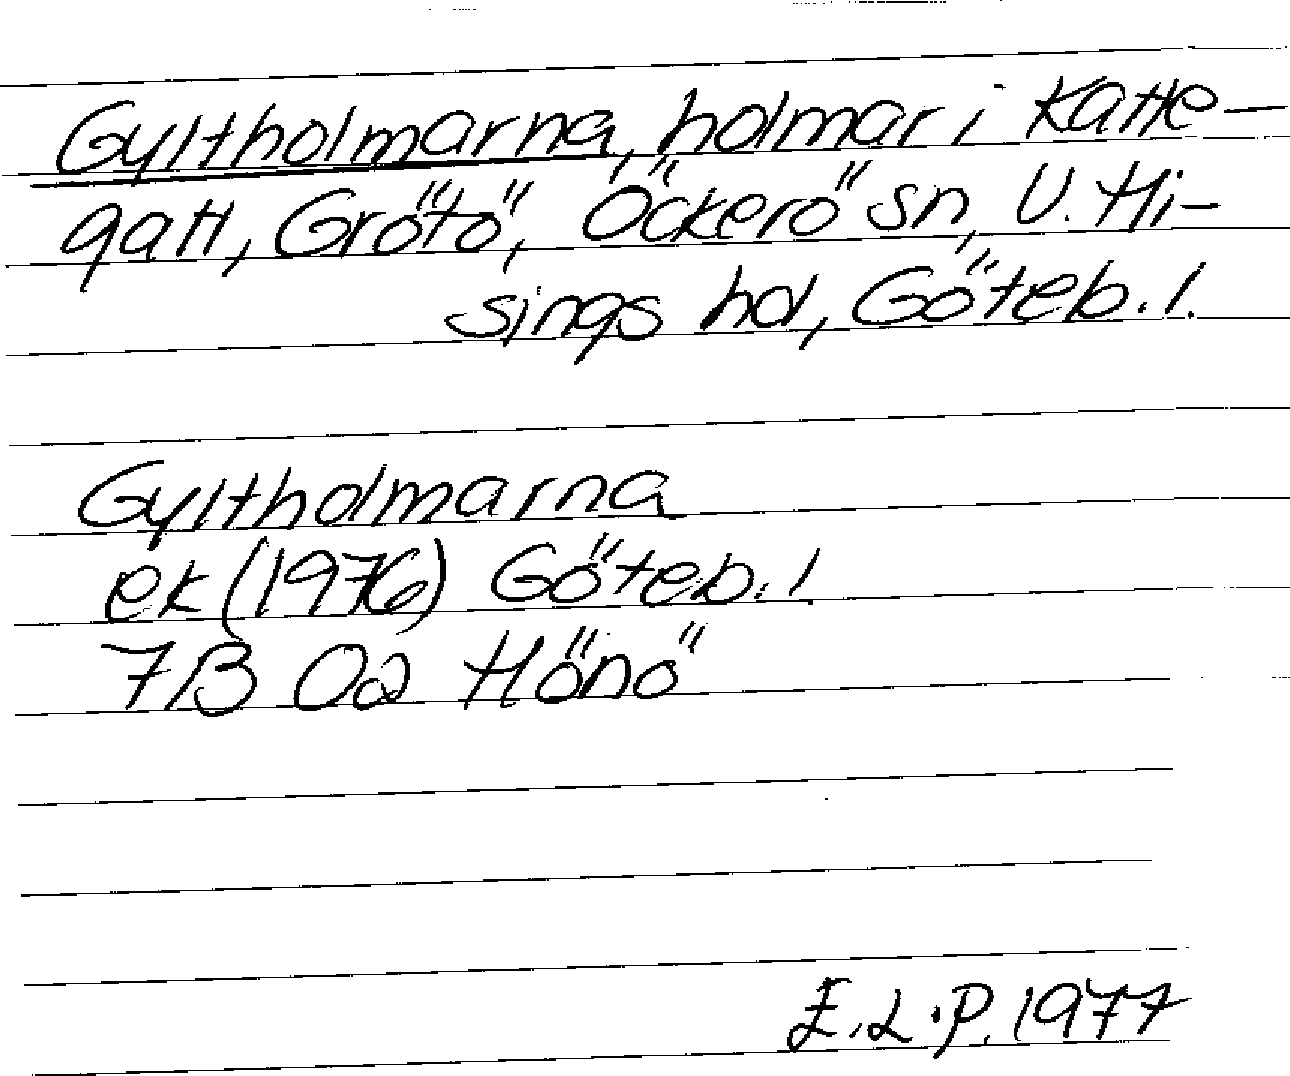 Gyltholmarna, holmar i Katte-
gatt, Grötö, Öckerö sn, V. Hi-
sings hd, Göteb. l.
Gyltholmarna
ek (1976) Göteb. l
7B 0a Hönö
E.L.P. 1977